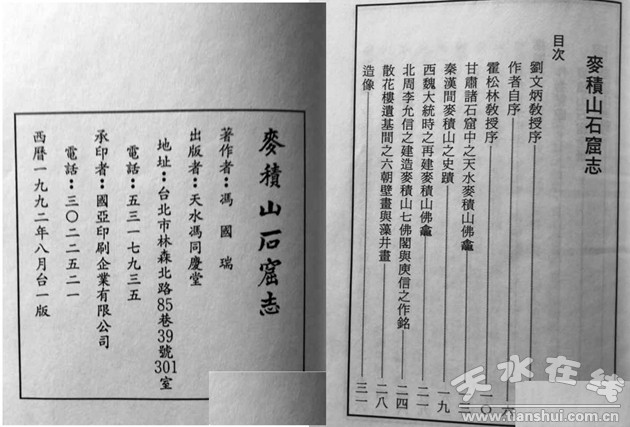 麥積山石窟志
著作者：馮國瑞
出版者：天水馮同慶堂
地址：台北市林森北路85巷39號301室
電話：五三一七九三五
承印者：國亞印刷企業有限公司
電話：三〇二二五二一
西曆一九九二年八月台一版
麥積山石窟志
目次
劉文炳教授序
作者自序 六
霍松林教授序 一〇
甘肅諸石窟中之天水麥積山佛龕
秦漢間麥積山之史蹟 一九
西魏大統時之再建麥積山佛龕 二一
北周李允信之建造麥積山七佛閣與庾信之作銘 二四
散花樓遺基間之六朝壁畫與藻井畫 二八
造像 三一
天水在线
www.tianshui.com.cn